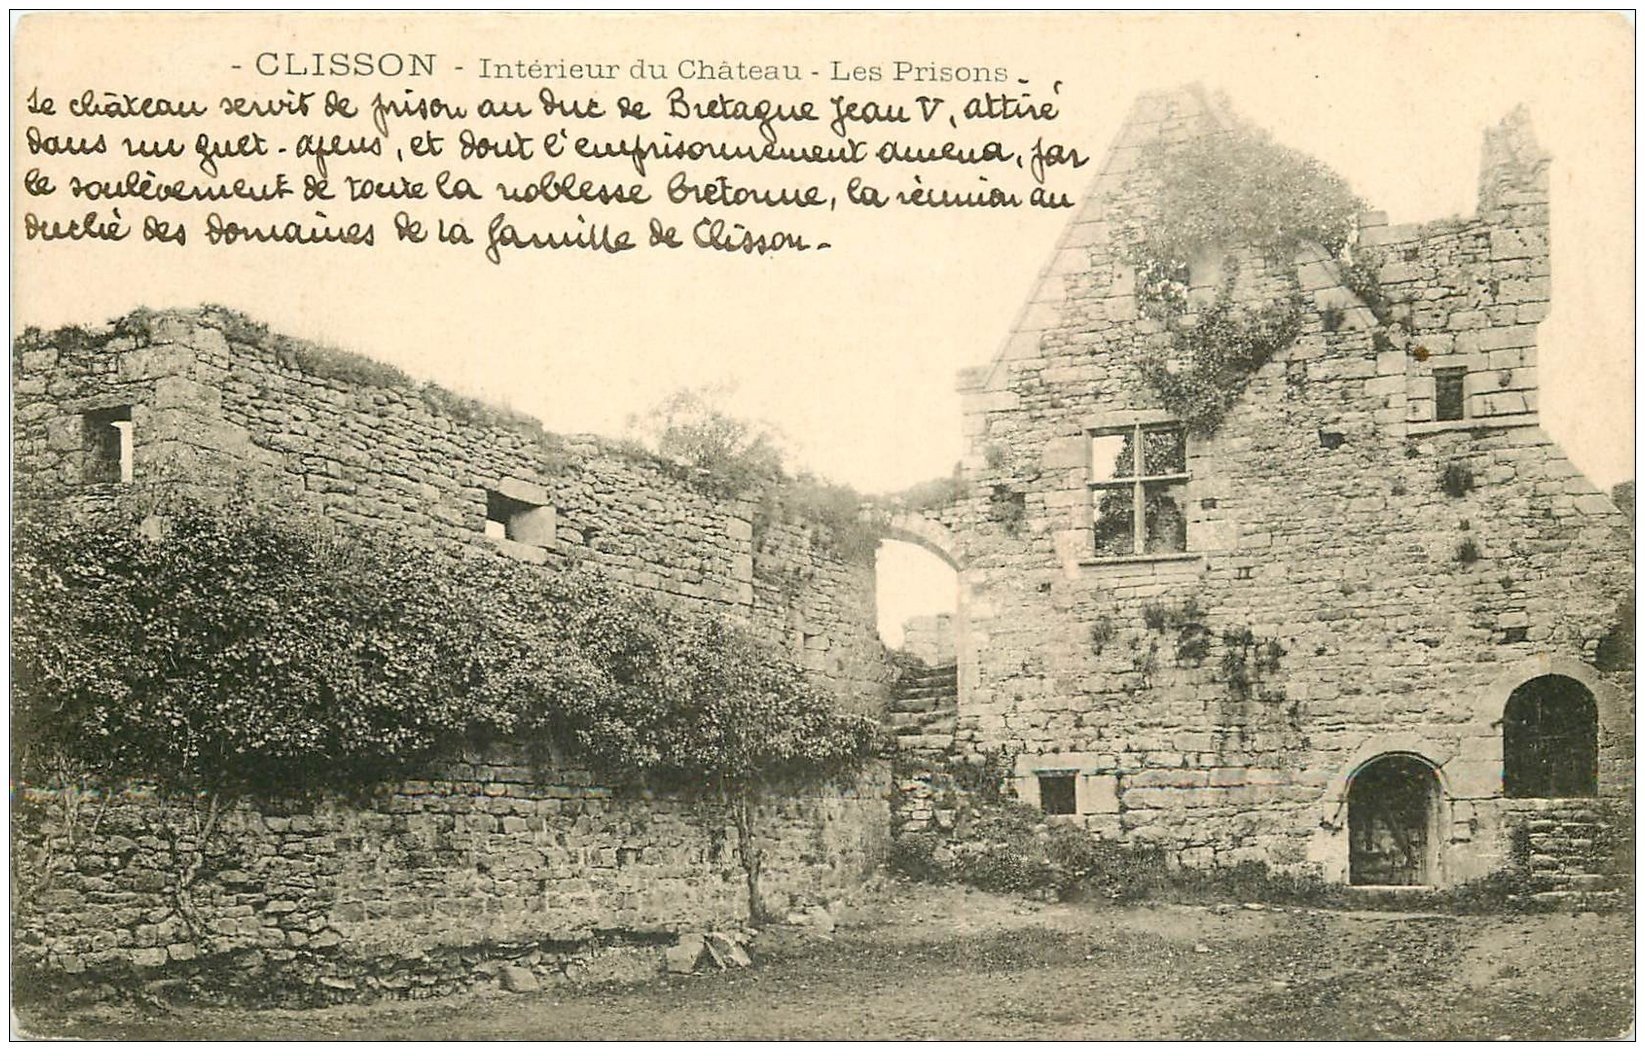 - CLISSON - Intérieur du Château - Les Prisons -
Le château servit de prison au duc de Bretagne Jean V, attiré
dans un guet-apens, et dont l'emprisonnement amena, par
le soulèvement de toute la noblesse bretonne, la réunion au
duché des domaines de la famille de Clisson -